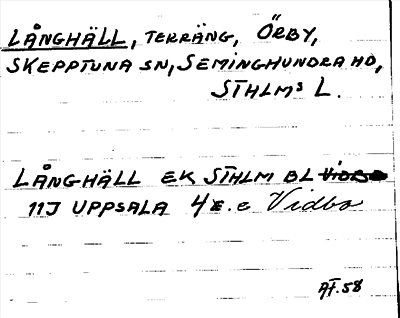 LÅNGHÄLL, TERRÄNG, ÖRBY,
SKEPPTUNA SN, SEMINGHUNDRA HD,
STHLMS L.
LÅNGHÄLL EK STHLM BL
11J UPPSALA 4E.e Vidbo
AF.58